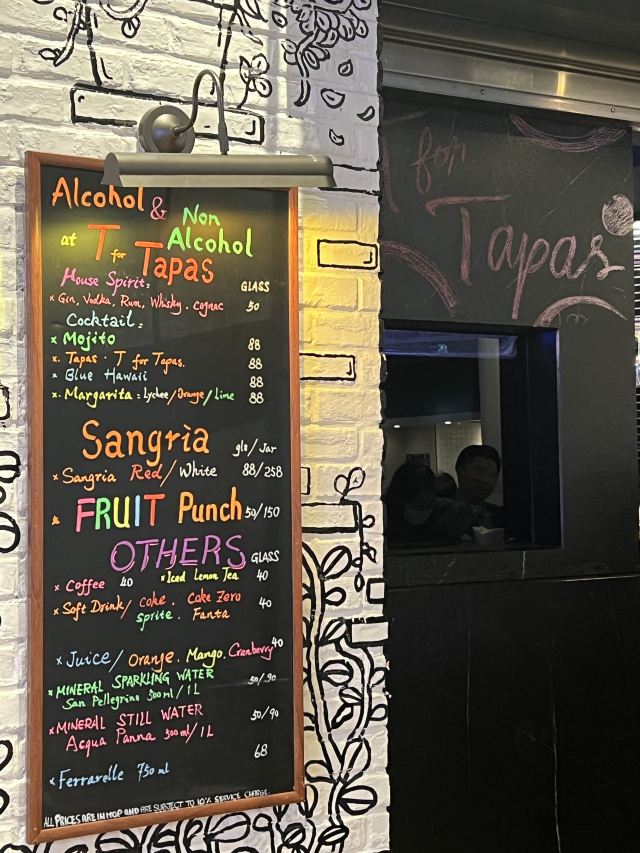 Alcohol & Non Alcohol
at T for Tapas
House Spirit: GLASS
x Gin, Vodka, Rum, Whisky. cognac 50
Cocktail:
x Mojito 88
x. Tapas. T for Tapas. 88
x Blue Hawaii 88
x. Margarita: Lychee/Orange/Lime 88
Sangria gls/Jar
x Sangria Red/White 88/258
FRUIT Punch 50/150
OTHERS GLASS
x Coffee 40 x Iced Lemon Tea 40
x Soft Drink/ coke. Coke Zero 40
sprite. Fanta
x Juice/ Orange. Mango. Cranberry 40
x MINERAL SPARKLING WATER 50/90
San Pellegrino 500ml/1L
x MINERAL STILL WATER 50/90
Acqua Panna 500ml/1L
68
x Ferrarelle 750ml
ALL PRICES ARE IN MOP AND ARE SUBJECT TO 10% SERVICE CHARGE
T for
Tapas